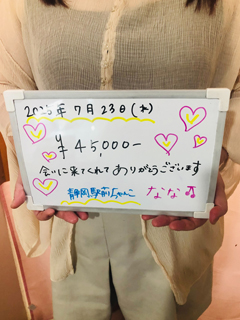 2025年7月23日(水)
¥45,000-
会いに来てくれてありがとうございます
静岡駅前ちゃんこ
ななお